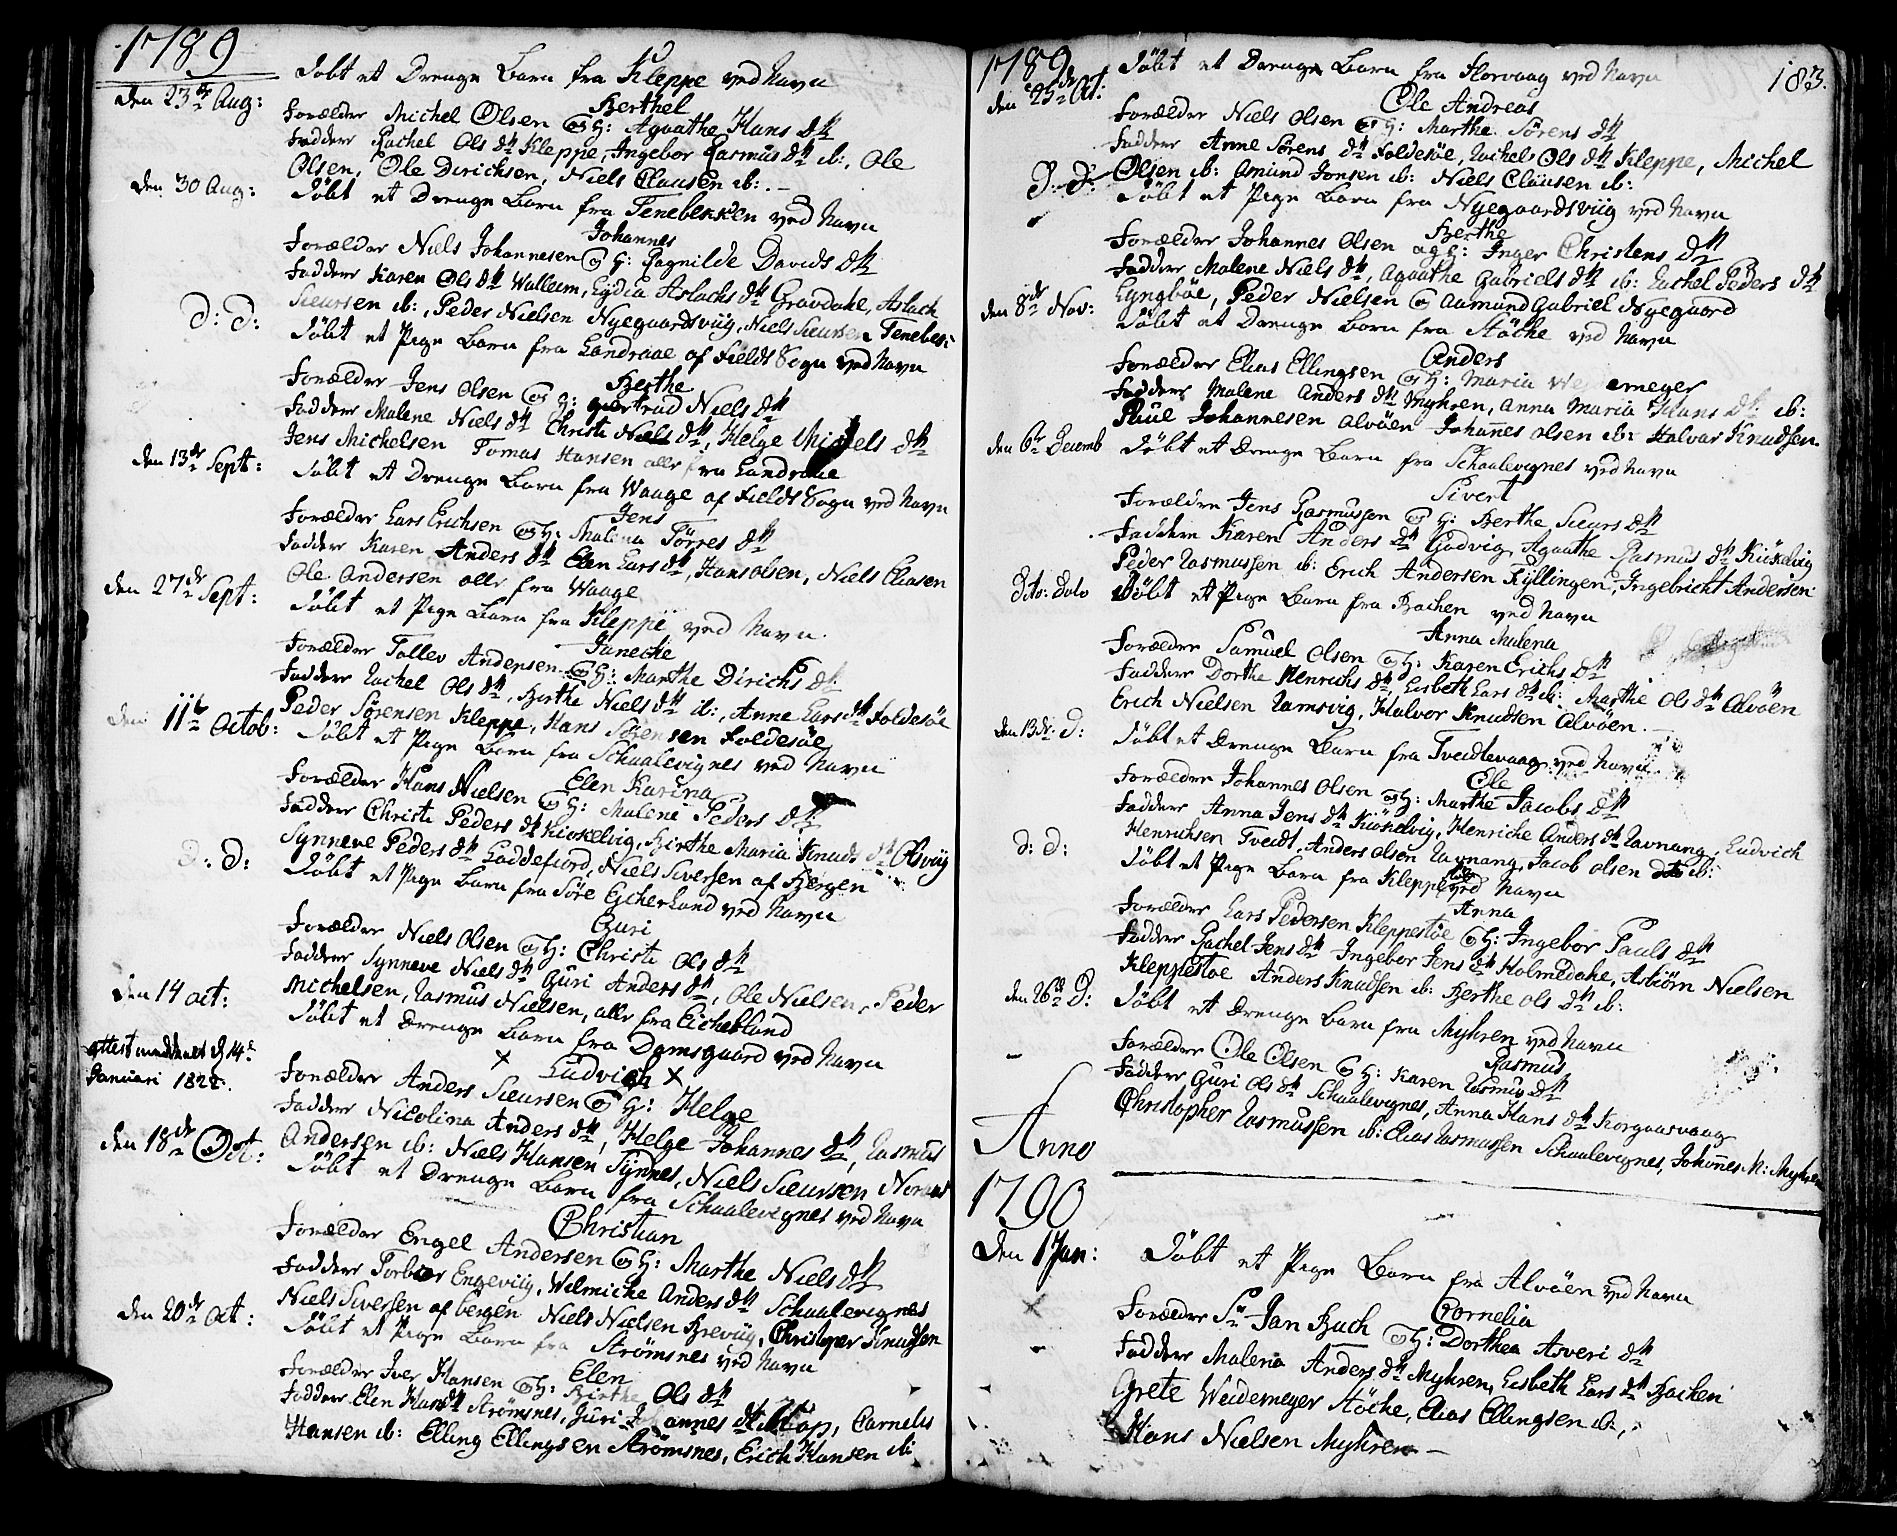 1789
den 23de Aug: Döbt et Drenge Barn fra Kleppe ved Navn
Berthel
Forælder Michel Olsen og H: Agaathe Hans dtt
Faddere Rachel Ols dtt Kleppe, Ingebor Rasmus dtt ib:, Ole
Olsen, Ole Dirichsen, Niels Clausen ib:. –
den 30 Aug: Döbt et Drenge Barn fra Tenebekken ved Navn
Johannes
Forælder Niels Johannesen og H: Ragnilde Davids dtt
Faddere Karen Ols dtt Walleim, Lydia Aslachs dtt Gravdahe, Aslach
Sieursen ib:, Peder Nielsen Nyegaardsviig, Niels Sieursen Tenebek:
D: D: Döbt et Pige Barn fra Landraae af Fields Sogn ved Navn
Berthe
Forælder Jens Olsen og H: giertrud Niels dtt
Faddere Malene Niels dtt Christi Niels dtt, Helge Michels dtt
Jens Michelsen Tomas Hansen alle fra Landraae
den 13de Sept: Döbt et Drenge Barn fra Waage af Fields Sogn ved Navn
Jens
Forælder Lars Erichsen og H: Malina Törres dtt
Faddere Karen Anders dtt Elen Lars dtt, Hans Olsen, Niels Eliasen
Ole Andersen alle fra Waage
den 27de Sept: Döbt et Pige Barn fra Kleppe ved Navn
Janeche
Forælder Tollev Andersen og H: Marthe Dirichs dtt
Faddere Rachel Ols dtt, Berthe Niels dtt ib:, Anne Lars dtt Foldesöe
Peder Sörensen Kleppe, Hans Sörensen Foldesöe
den 11te Octob: Döbt et Pige Barn fra Schaalevignes ved Navn
Elen Karina
Forælder Hans Nielsen og H: Malene Peders dtt
Faddere Christi Peders dtt Kiökelvig, Birthe Maria Knuds dtt Olsviig
Synneve Peders dtt Laddefiord, Niels Siversen af Bergen
D: D: Döbt et Pige Barn fra Söre Eicherland ved Navn
Guri
Forælder Niels Olsen og H: Christi Ols dtt
Faddere Synneve Niels dtt Guri Anders dtt, Ole Nielsen, Peder
Michelsen, Rasmus Nielsen, alle fra Eicherland
den 14 oct: Döbt et Drenge Barn fra Damsgaard ved Navn
× Ludvich ×
Attest meddeelt d 14e
Januari 1822.
Forælder Anders Sieursen og H: Helge
Faddere Nicolina Anders dtt, Helge Johannes dtt, Rasmus
Andersen ib: Niels Hansen Synnes, Niels Sieursen
den 18de Oct: Döbt et Drenge Barn fra Schaalevignes ved Navn
Christian
Forælder Engel Andersen og H: Marthe Niels dtt
Faddere Torbiör Engeviig, Welmiche Anders dtt Schaalevignes
Niels Siversen af bergen Niels Nielsen Breviig, Christoper Knudsen
den 20de oct: Döbt et Pige Barn fra Strömsnes ved Navn
Elen
Forælder Iver Hansen og H: Birthe Ols dtt
Faddere Elen Hans dtt Strömsnes, Guri Johannes dtt Cornelis
Hansen ib: Elling Ellingsen Strömsnes, Erich Hansen ib:
1789 183.
den 25de Oct: Döbt et Drenge Barn fra Horvaag ved Navn
Ole Andreas
Forælder Niels Olsen og H: Marthe Sörens dtt
Faddere Anne Sörens dtt Foldesöe, Rachel Ols dtt Kleppe, Michel
Olsen ib: Amund Jonsen ib: Niels Clausen ib:
D. D: Döbt et Pige Barn fra Nyegaardsviig ved Navn
Berthe
Forælder Johannes Olsen og H: Inger Christens dtt
Faddere Malene Niels dtt, Agaathe Gabriels dtt ib: Rachel Peders dtt
Lyngböe, Peder Nielsen og Aamund Gabriel Nyegaard
den 8de Nov: Döbt et Drenge Barn fra Höche ved Navn
Anders
Forælder Elias Ellingsen og H: Maria
Faddere Malene Anders dtt Myhren, Anna Maria Hans dtt ib:
Paul Johannesen Alvöen Johannes Olsen ib: Halvor Knudsen
den 6te Decemb Döbt et Drenge Barn fra Schaalevignes ved Navn
Sivert
Forældre Jens Rasmussen og H: Berthe Sieurs dtt
Faddere Karen Anders dtt Godvig, Agaathe Rasmus dtt Kiökelvig
Peder Rasmussen ib: Erich Andersen Fyllingen, Ingebricht Andersen
Dito: Dato Döbt et Pige Barn fra Bachen ved Navn
Anna Malena
Forælder Samuel Olsen og H: Karen Erichs dtt
Faddere Dorthe Henrichs dtt, Lisbeth Lars dtt ib: Marthe Ols dtt Alvöen
Erich Nielsen Ramsvig, Halvor Knudsen Alvöen.
den 13de D: Döbt et Drenge Barn fra Tvedtevaag ved Navn
Ole
Forælder Johannes Olsen og H: Marthe Jacobs dtt
Faddere Anna Jens dtt Kiökelvig, Henriche Anders dtt Ravnang, Ludvich
Henrichsen Tvedt, Anders Olsen Ravnang, Jacob Olsen ib:
d: D: Döbt et Pige Barn fra Kleppe ved Navn
Anna
Forælder Lars Pedersen Kleppestöe og H: Ingebor Pauls dtt
Faddere Rachel Jens dtt Ingebor Jens dtt Holmedahe, Asbiörn Nielsen
Kleppestöe Anders Knudsen ib: Berthe Ols dtt ib:
den 26de D: Döbt et Drenge Barn fra Myhren ved Navn
Rasmus
Forælder Ole Olsen og H: Karen Rasmus dtt
Faddere Guri Ols dtt Schaalevignes, Anna Hans dtt Korgaasvaag
Christopher Rasmussen ib: Elias Rasmussen Schaalevignes, Johannes M: Myhren
Anno
1790
Den 1 Jan: Döbt et Pige Barn fra Alvöen ved Navn
Cornelia
Forælder Sr Jan Bach og H: Dorthea Asveri dtt
Faddere Malena Anders dtt Myhren, Lisbeth Lars dtt Bachen
Grete Weidemeyer Höche, Elias Ellingsen ib:,
Hans Nielsen Myhren –